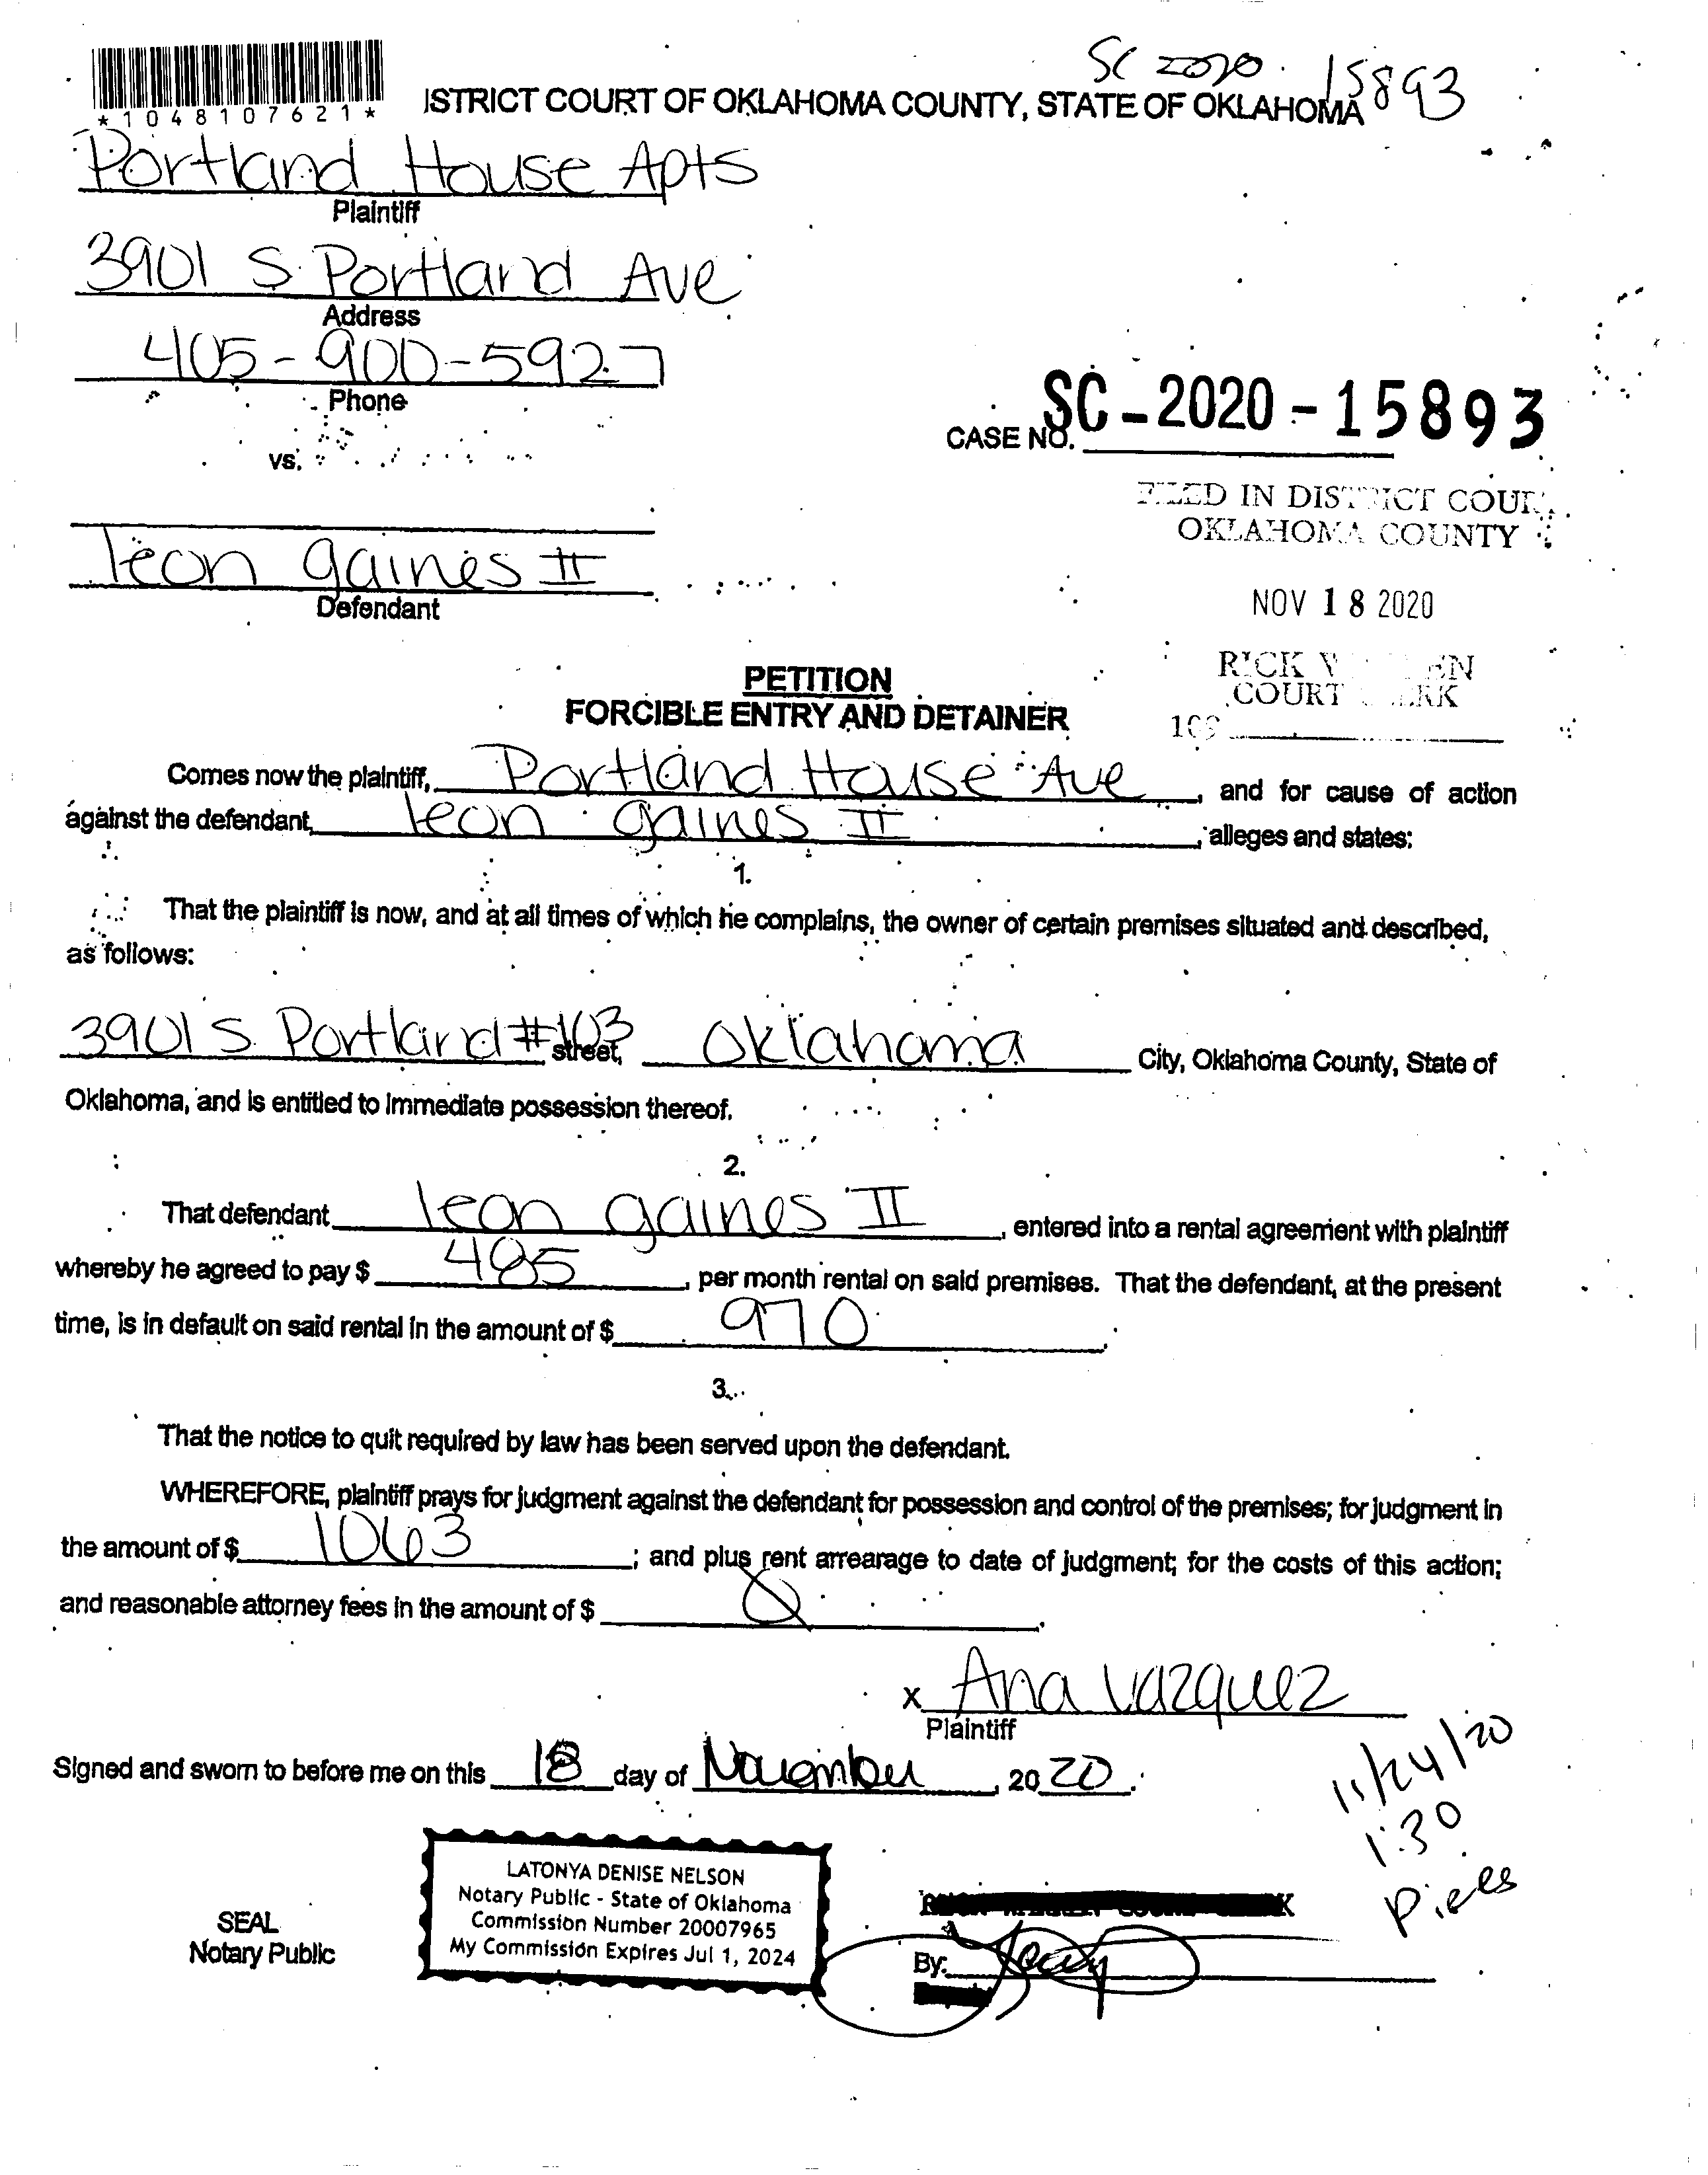 SC 2020 15893
*1048107621*
ISTRICT COURT OF OKLAHOMA COUNTY, STATE OF OKLAHOMA
Portland House Apts
Plaintiff
3901 S Portland Ave
Address
405-900-5927
Phone
CASE NO. SC-2020-15893
vs.
FILED IN DISTRICT COUR
OKLAHOMA COUNTY
leon gaines II
Defendant
NOV 18 2020
RICK
COURT
PETITION
FORCIBLE ENTRY AND DETAINER
Comes now the plaintiff, Portland House Ave, and for cause of action
against the defendant, leon gaines II, alleges and states:
1.
That the plaintiff is now, and at all times of which he complains, the owner of certain premises situated and described,
as follows:
3901 S. Portland #103 street, Oklahoma City, Oklahoma County, State of
Oklahoma, and is entitled to immediate possession thereof.
2.
That defendant leon gaines II, entered into a rental agreement with plaintiff
whereby he agreed to pay $ 485, per month rental on said premises. That the defendant, at the present
time, is in default on said rental in the amount of $ 970.
3.
That the notice to quit required by law has been served upon the defendant.
WHEREFORE, plaintiff prays for judgment against the defendant for possession and control of the premises; for judgment in
the amount of $ 1063; and plus rent arrearage to date of judgment; for the costs of this action;
and reasonable attorney fees in the amount of $ 0.
X Ana Vazquez
Plaintiff
Signed and sworn to before me on this 18 day of November, 20 20.
11/24/20
1:30
LATONYA DENISE NELSON
Notary Public - State of Oklahoma
Commission Number 20007965
My Commission Expires Jul 1, 2024
SEAL
Notary Public
By: